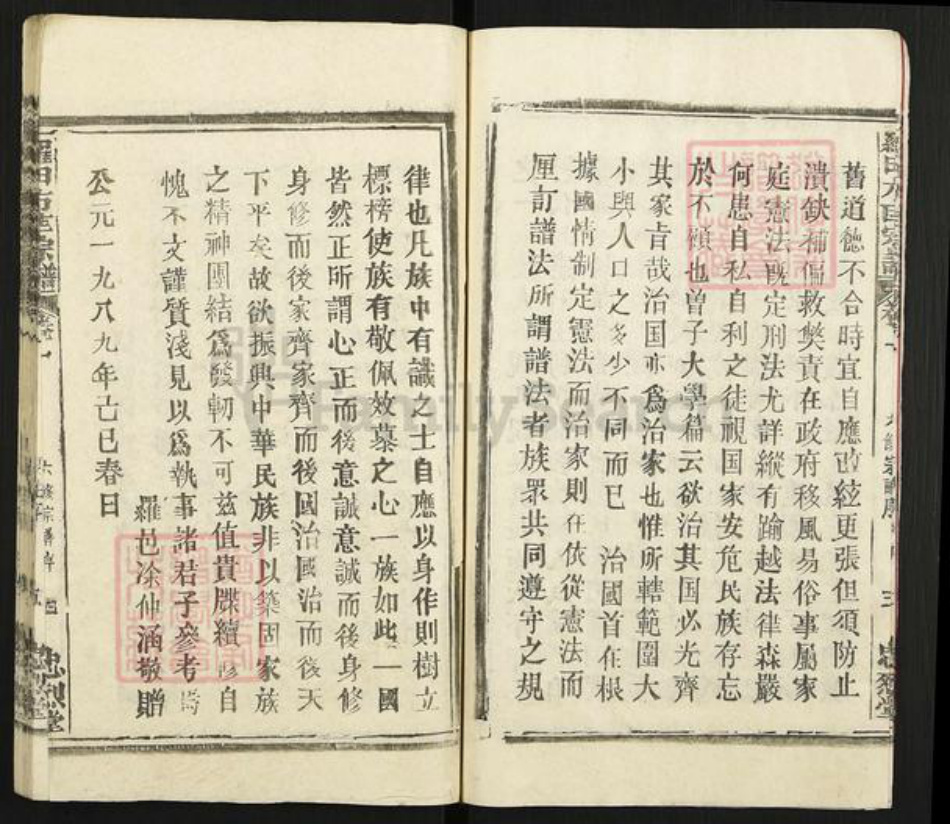 舊道德不合時宜自應改絃更張但須防止
潰缺補偏救獘責在政府移風易俗事屬家
庭憲法既定刑法尤詳縱有踰越法律森嚴
何患自私自利之徒視国家安危民族存忘
於不顧也曽子大學篇云欲治其国必光齊
其家㫖哉治国亦爲治家也惟所轄範圍大
小與人口之多少不同而已 治國首在根
據國情制定憲法而治家則在依從憲法而
厘訂譜法所謂譜法者族眾共同遵守之規
律也凡族中有識之士自應以身作則樹立
標榜使族有敬佩效慕之心一族如此一國
皆然正所謂心正而後意誠意誠而後身修
身修而後家齊家齊而後國治國治而後天
下平矣故欲振興中華民族非以築固家族
之精神團結爲發軔不可兹值貴牒續修自
愧不文謹質淺見以爲執事諸君子參考
羅邑涂仲涵敬贈
公元一九八九年亡巳春日
忠烈堂
宗譜
四
忠烈堂
FamilySearch